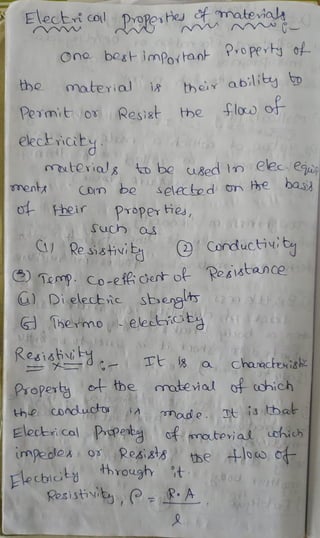 Electrical Properties of materials :-
One best important Property of
the material is their ability to
Permit or Resist the flow of
electricity.
materials to be used in elec. equip
ments can be selected on the basis
of their properties,
such as
(1) Resistivity (2) Conductivity
(3) Temp. co-efficient of Resistance
(4) Dielectric strength
(5) Thermo - electricity
Resistivity :- It is a characteristic
Property of the material of which
the conductor is made. It is that
Electrical Property of material which
impedes or Resists the flow of
Electricity through it.
Resistivity, ρ = R.A
l